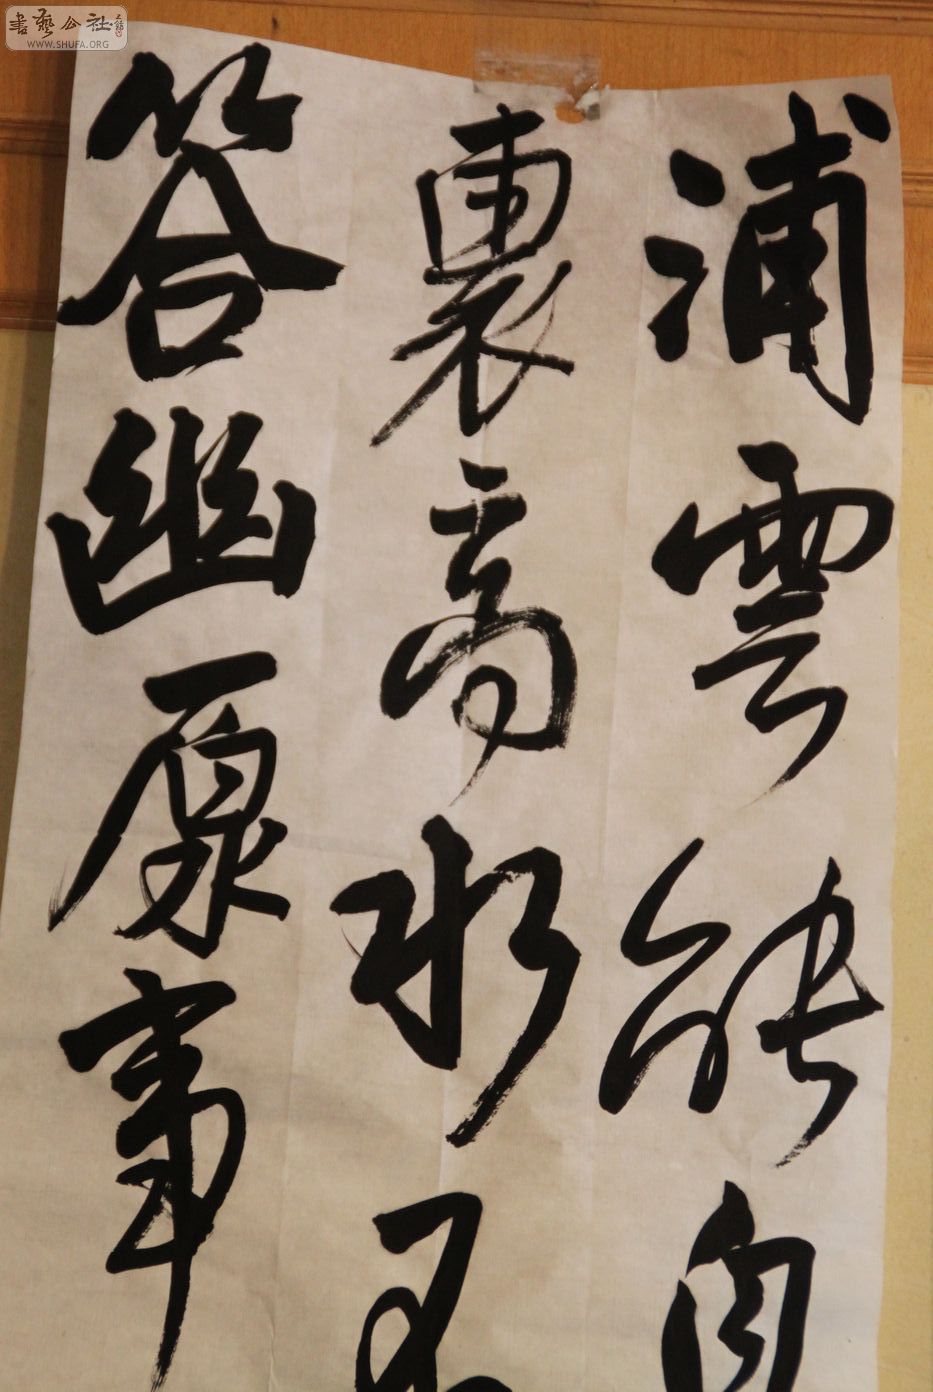 書藝公社
WWW.SHUFA.ORG
浦雲能自
裏高水不
答幽原事